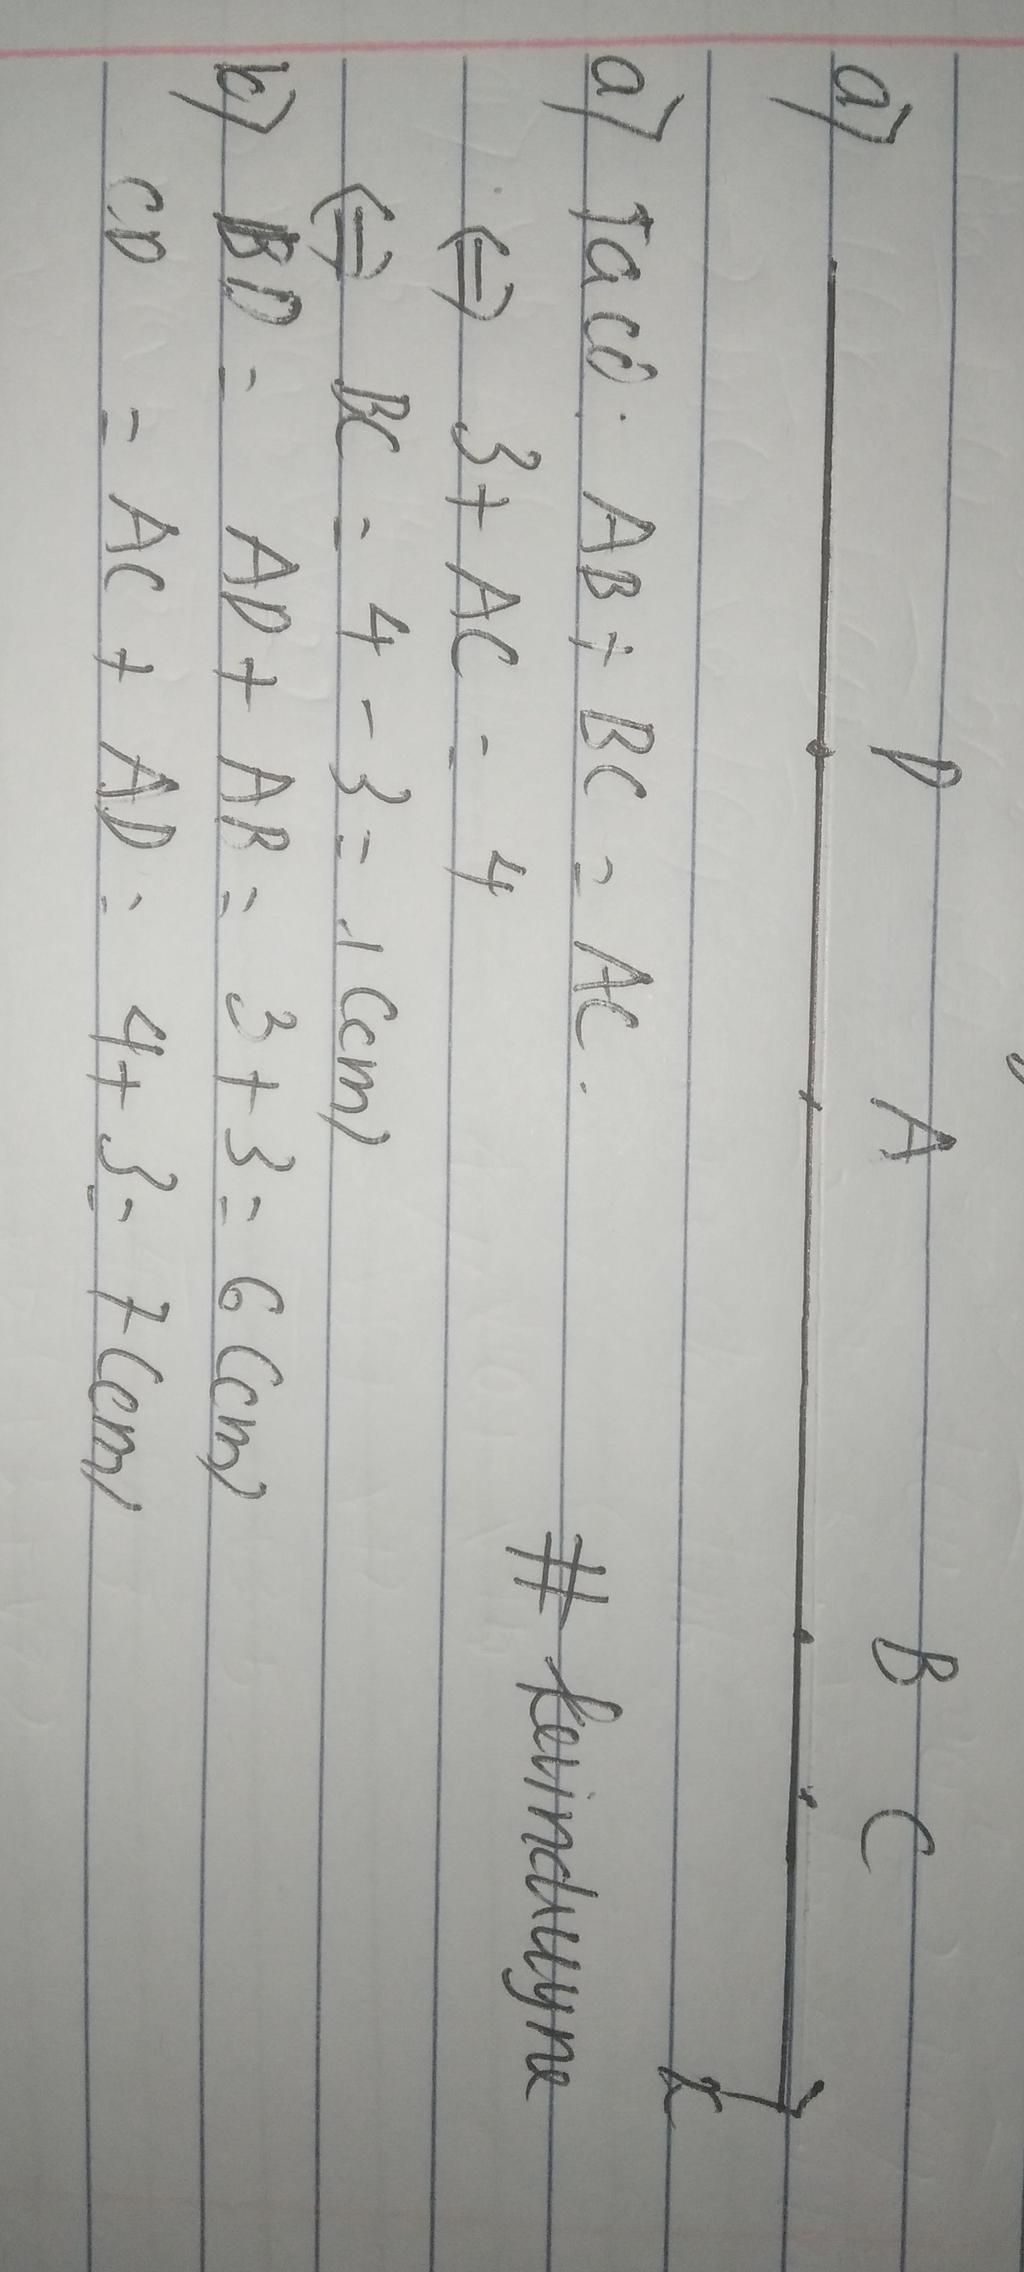 D A B C
a)
x
a) Ta có. AB + BC = AC.
<=> 3 + AC = 4
# kevinduyne
<=> BC = 4 - 3 = 1 (cm)
b) BD = AD + AB = 3 + 3 = 6 (cm)
CD = AC + AD = 4 + 3 = 7 (cm)